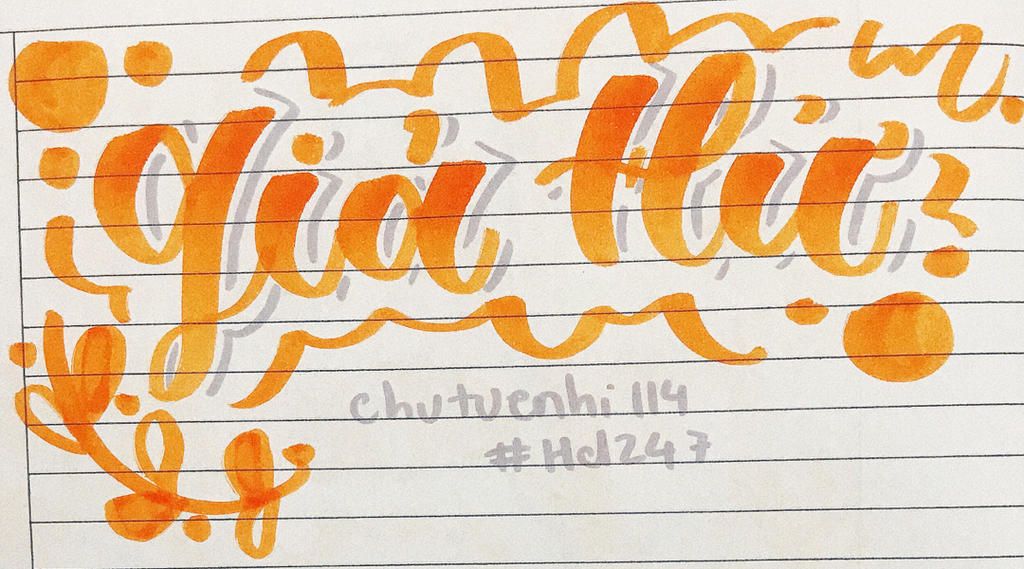 giả thử
chutuenhi 114
#Hd247